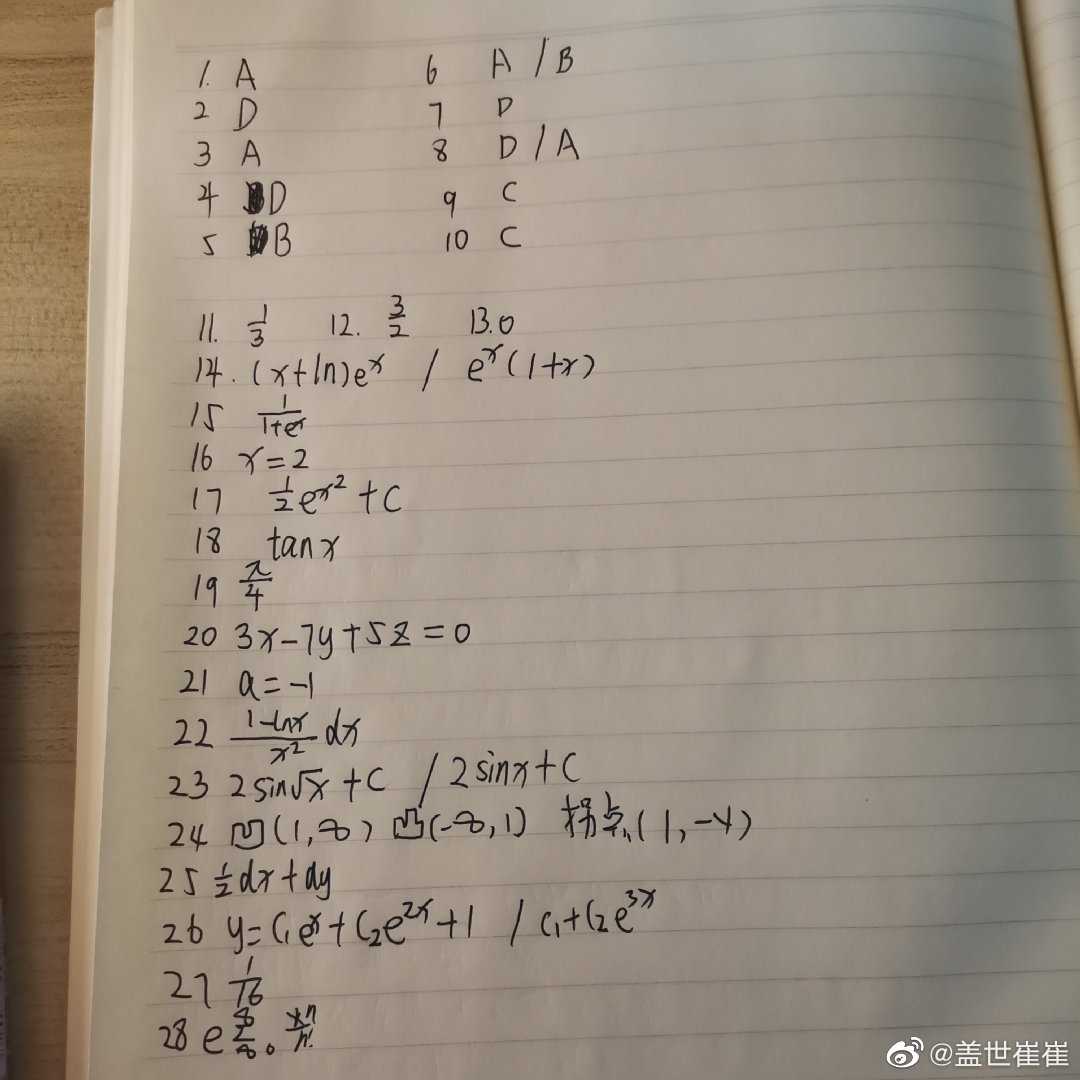 1. A 6 A / B
2 D 7 D
3 A 8 D / A
4 D 9 C
5 B 10 C
11. 1/3 12. 3/2 13. 0
14. (x+ln)eˣ / eˣ(1+x)
15 1/(1+eˣ)
16 x=2
17 1/2 e^x² + C
18 tanx
19 π/4
20 3x-7y+5z=0
21 a=-1
22 (1-lnx)/x² dx
23 2sin√x + C / 2sinx+C
24 凹(1,∞) 凸(-∞,1) 拐点(1,-4)
25 1/2dx+dy
26 y=C₁eˣ+C₂e²ˣ+1 / C₁+C₂e³ˣ
27 1/16
28 e xⁿ/n!
@盖世崔崔